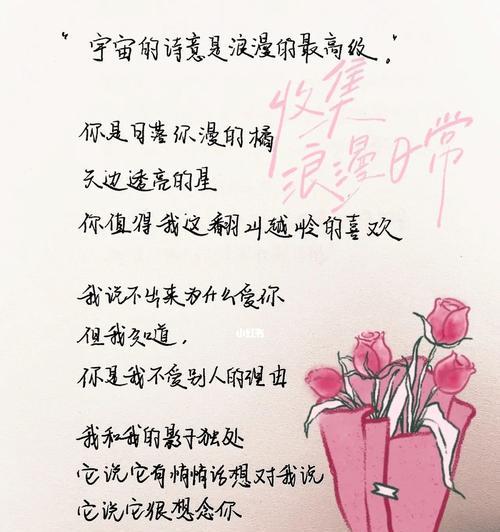 “宇宙的诗意是浪漫的最高级。”
收集
浪漫日常
你是日落弥漫的橘
天边透亮的星
你值得我这翻山越岭的喜欢
我说不出来为什么爱你
但我知道，
你是我不爱别人的理由
小红书
我和我的影子独处
它说它有悄悄话想对我说
它说它很想念你